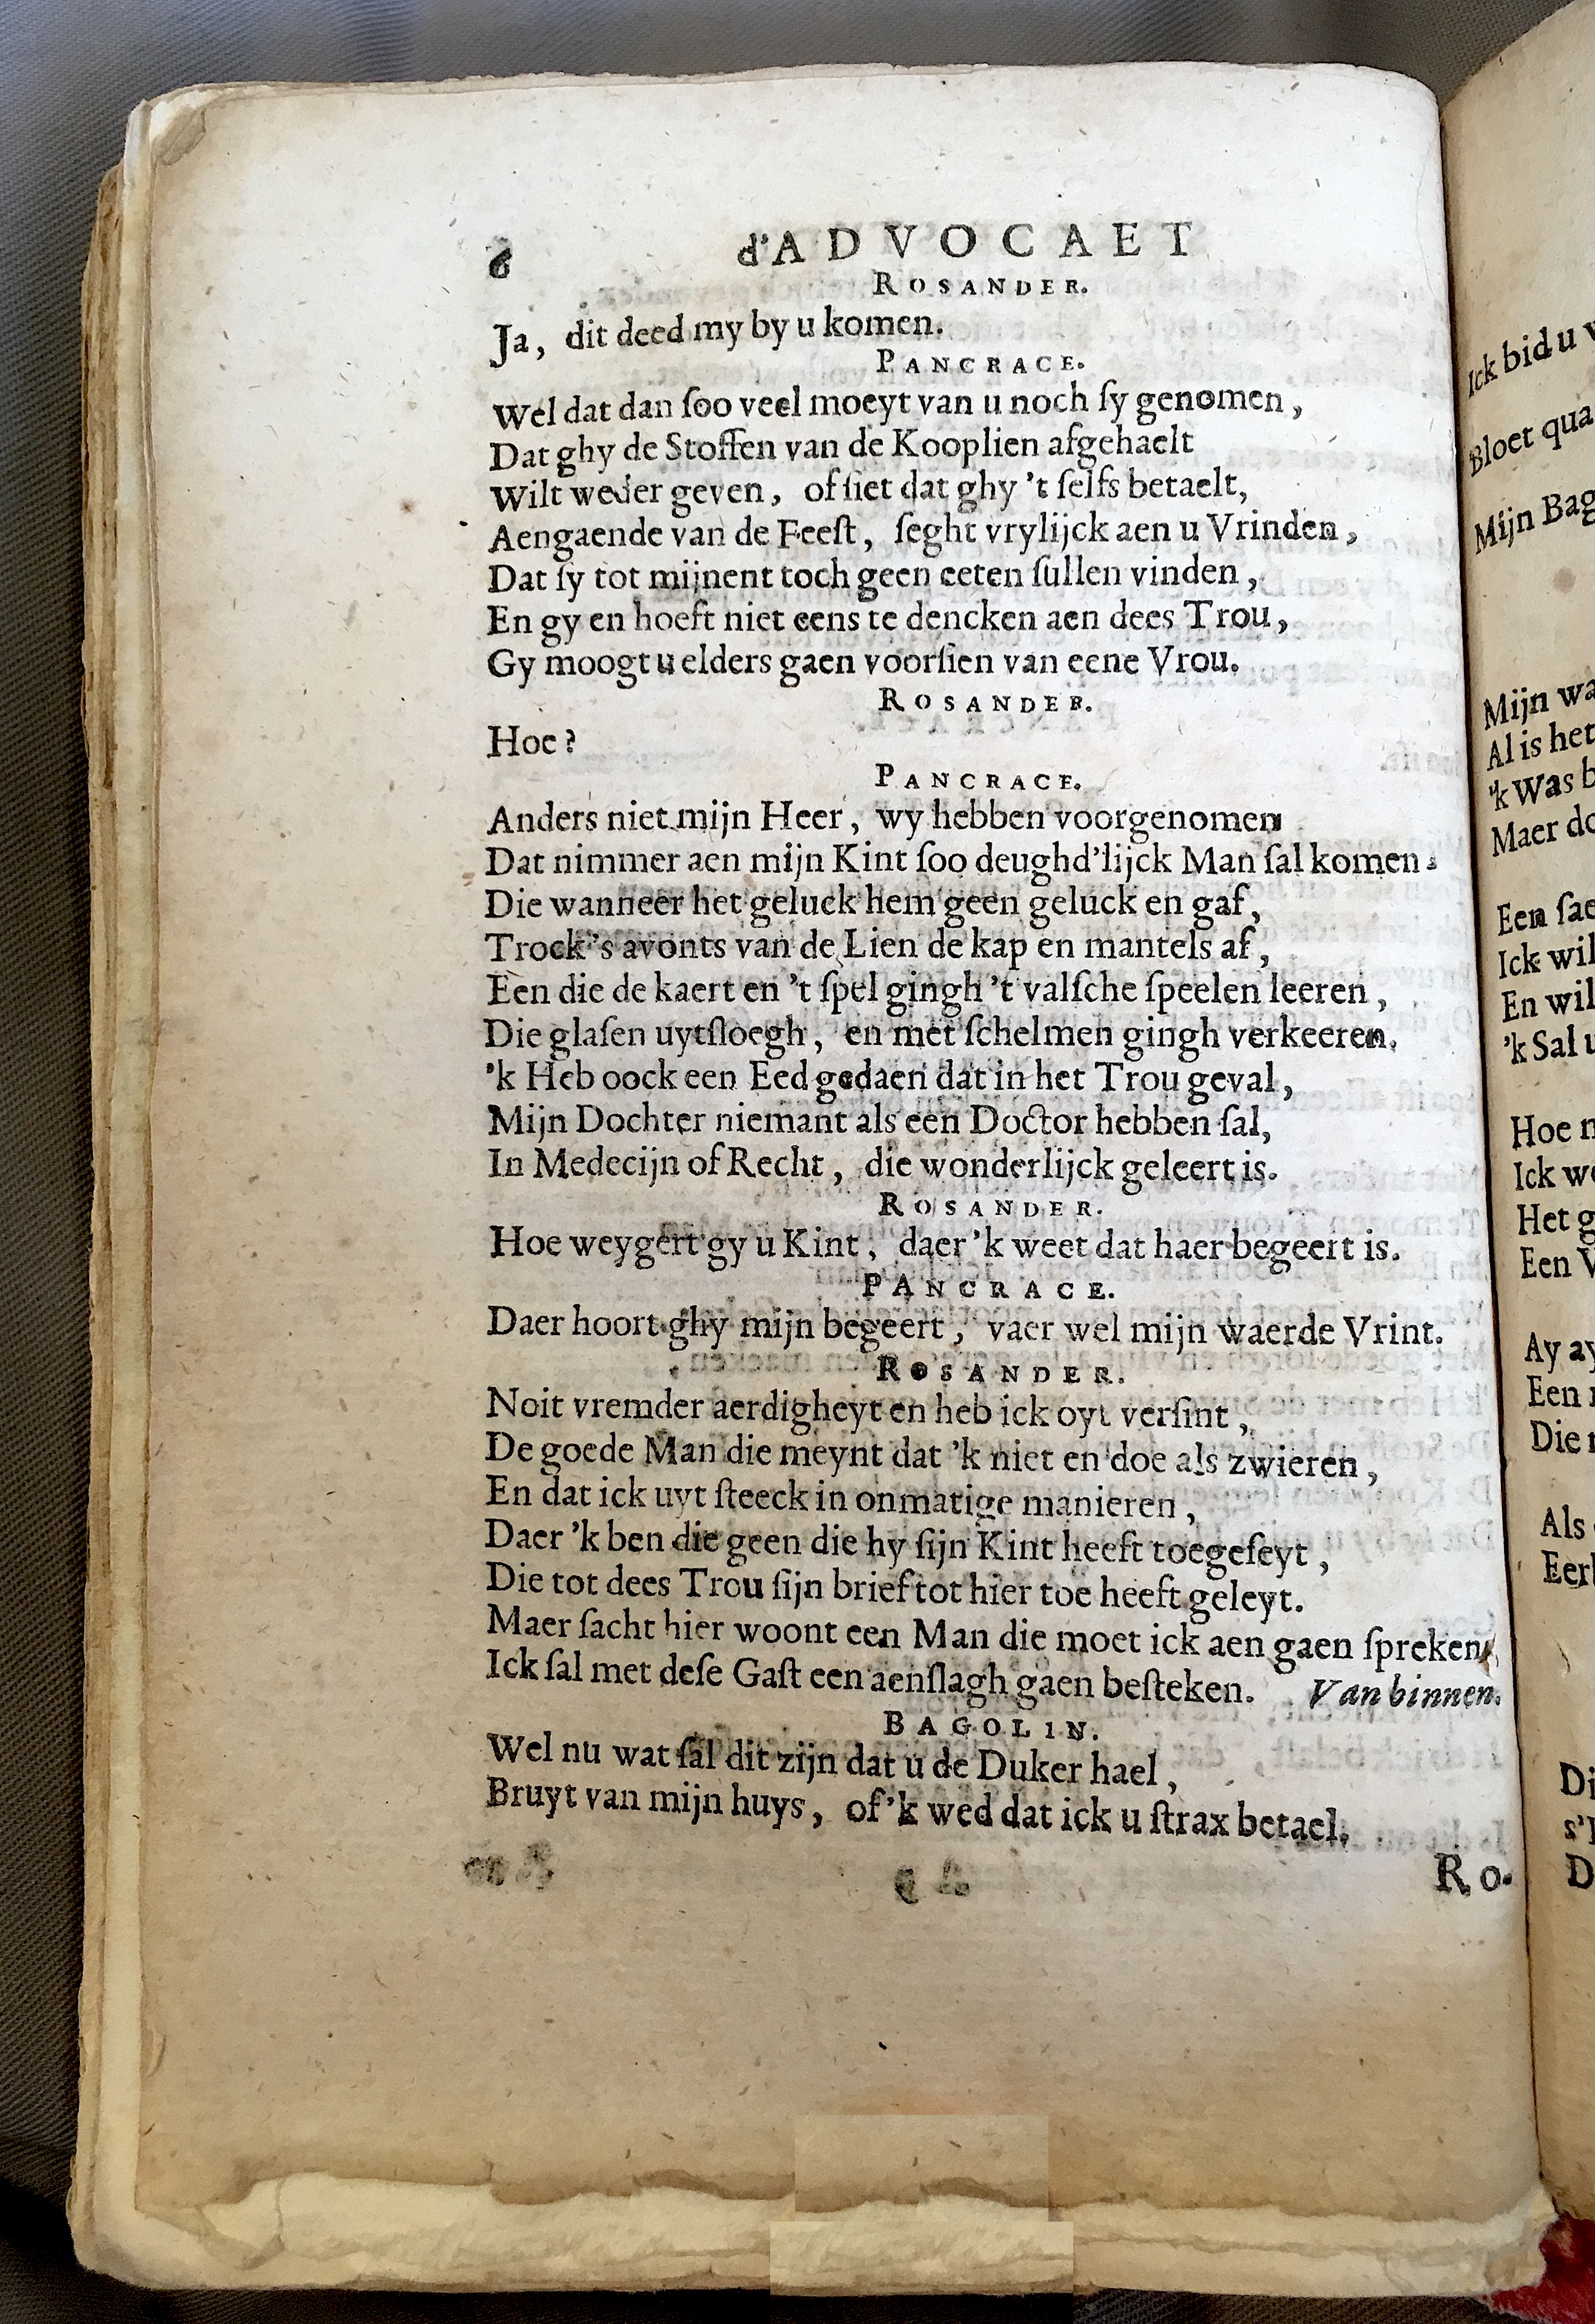 6 d'ADVOCAET
ROSANDER.
Ja, dit deed my by u komen.
PANCRACE.
Wel dat dan ſoo veel moeyt van u noch ſy genomen,
Dat ghy de Stoffen van de Kooplien afgehaelt
Wilt weder geven, of ſiet dat ghy 't ſelfs betaelt,
Aengaende van de Feeſt, ſeght vrylijck aen u Vrinden,
Dat ſy tot mijnent toch geen eeten ſullen vinden,
En gy en hoeft niet eens te dencken aen dees Trou,
Gy moogt u elders gaen voorſien van eene Vrou.
ROSANDER.
Hoe?
PANCRACE.
Anders niet mijn Heer, wy hebben voorgenomen
Dat nimmer aen mijn Kint ſoo deughd'lijck Man ſal komen.
Die wanneer het geluck hem geen geluck en gaf,
Trock 's avonts van de Lien de kap en mantels af,
Een die de kaert en 't ſpel gingh 't valſche ſpeelen leeren,
Die glaſen uytſloegh, en met ſchelmen gingh verkeeren.
'k Heb oock een Eed gedaen dat in het Trou geval,
Mijn Dochter niemant als een Doctor hebben ſal,
In Medecijn of Recht, die wonderlijck geleert is.
ROSANDER.
Hoe weygert gy u Kint, daer 'k weet dat haer begeert is.
PANCRACE.
Daer hoort ghy mijn begeert, vaer wel mijn waerde Vrint.
ROSANDER.
Noit vremder aerdigheyt en heb ick oyt verſint,
De goede Man die meynt dat 'k niet en doe als zwieren,
En dat ick uyt ſteeck in onmatige manieren,
Daer 'k ben die geen die hy ſijn Kint heeft toegeſeyt,
Die tot dees Trou ſijn brief tot hier toe heeft geleyt.
Maer ſacht hier woont een Man die moet ick aen gaen ſpreken,
Ick ſal met deſe Gaſt een aenſlagh gaen beſteken. Van binnen.
BAGOLIN.
Wel nu wat ſal dit zijn dat u de Duker hael,
Bruyt van mijn huys, of 'k wed dat ick u ſtrax betael.
Ro-
Ick bid u
Bloet qua
Mijn Bag
Mijn wa
Al is het
'k Was b
Maer do
Een ſae
Ick wil
En wil
'k Sal u
Hoe
Ick w
Het g
Een V
Ay ay
Een
Die
Als
Eer
Di
s'
D